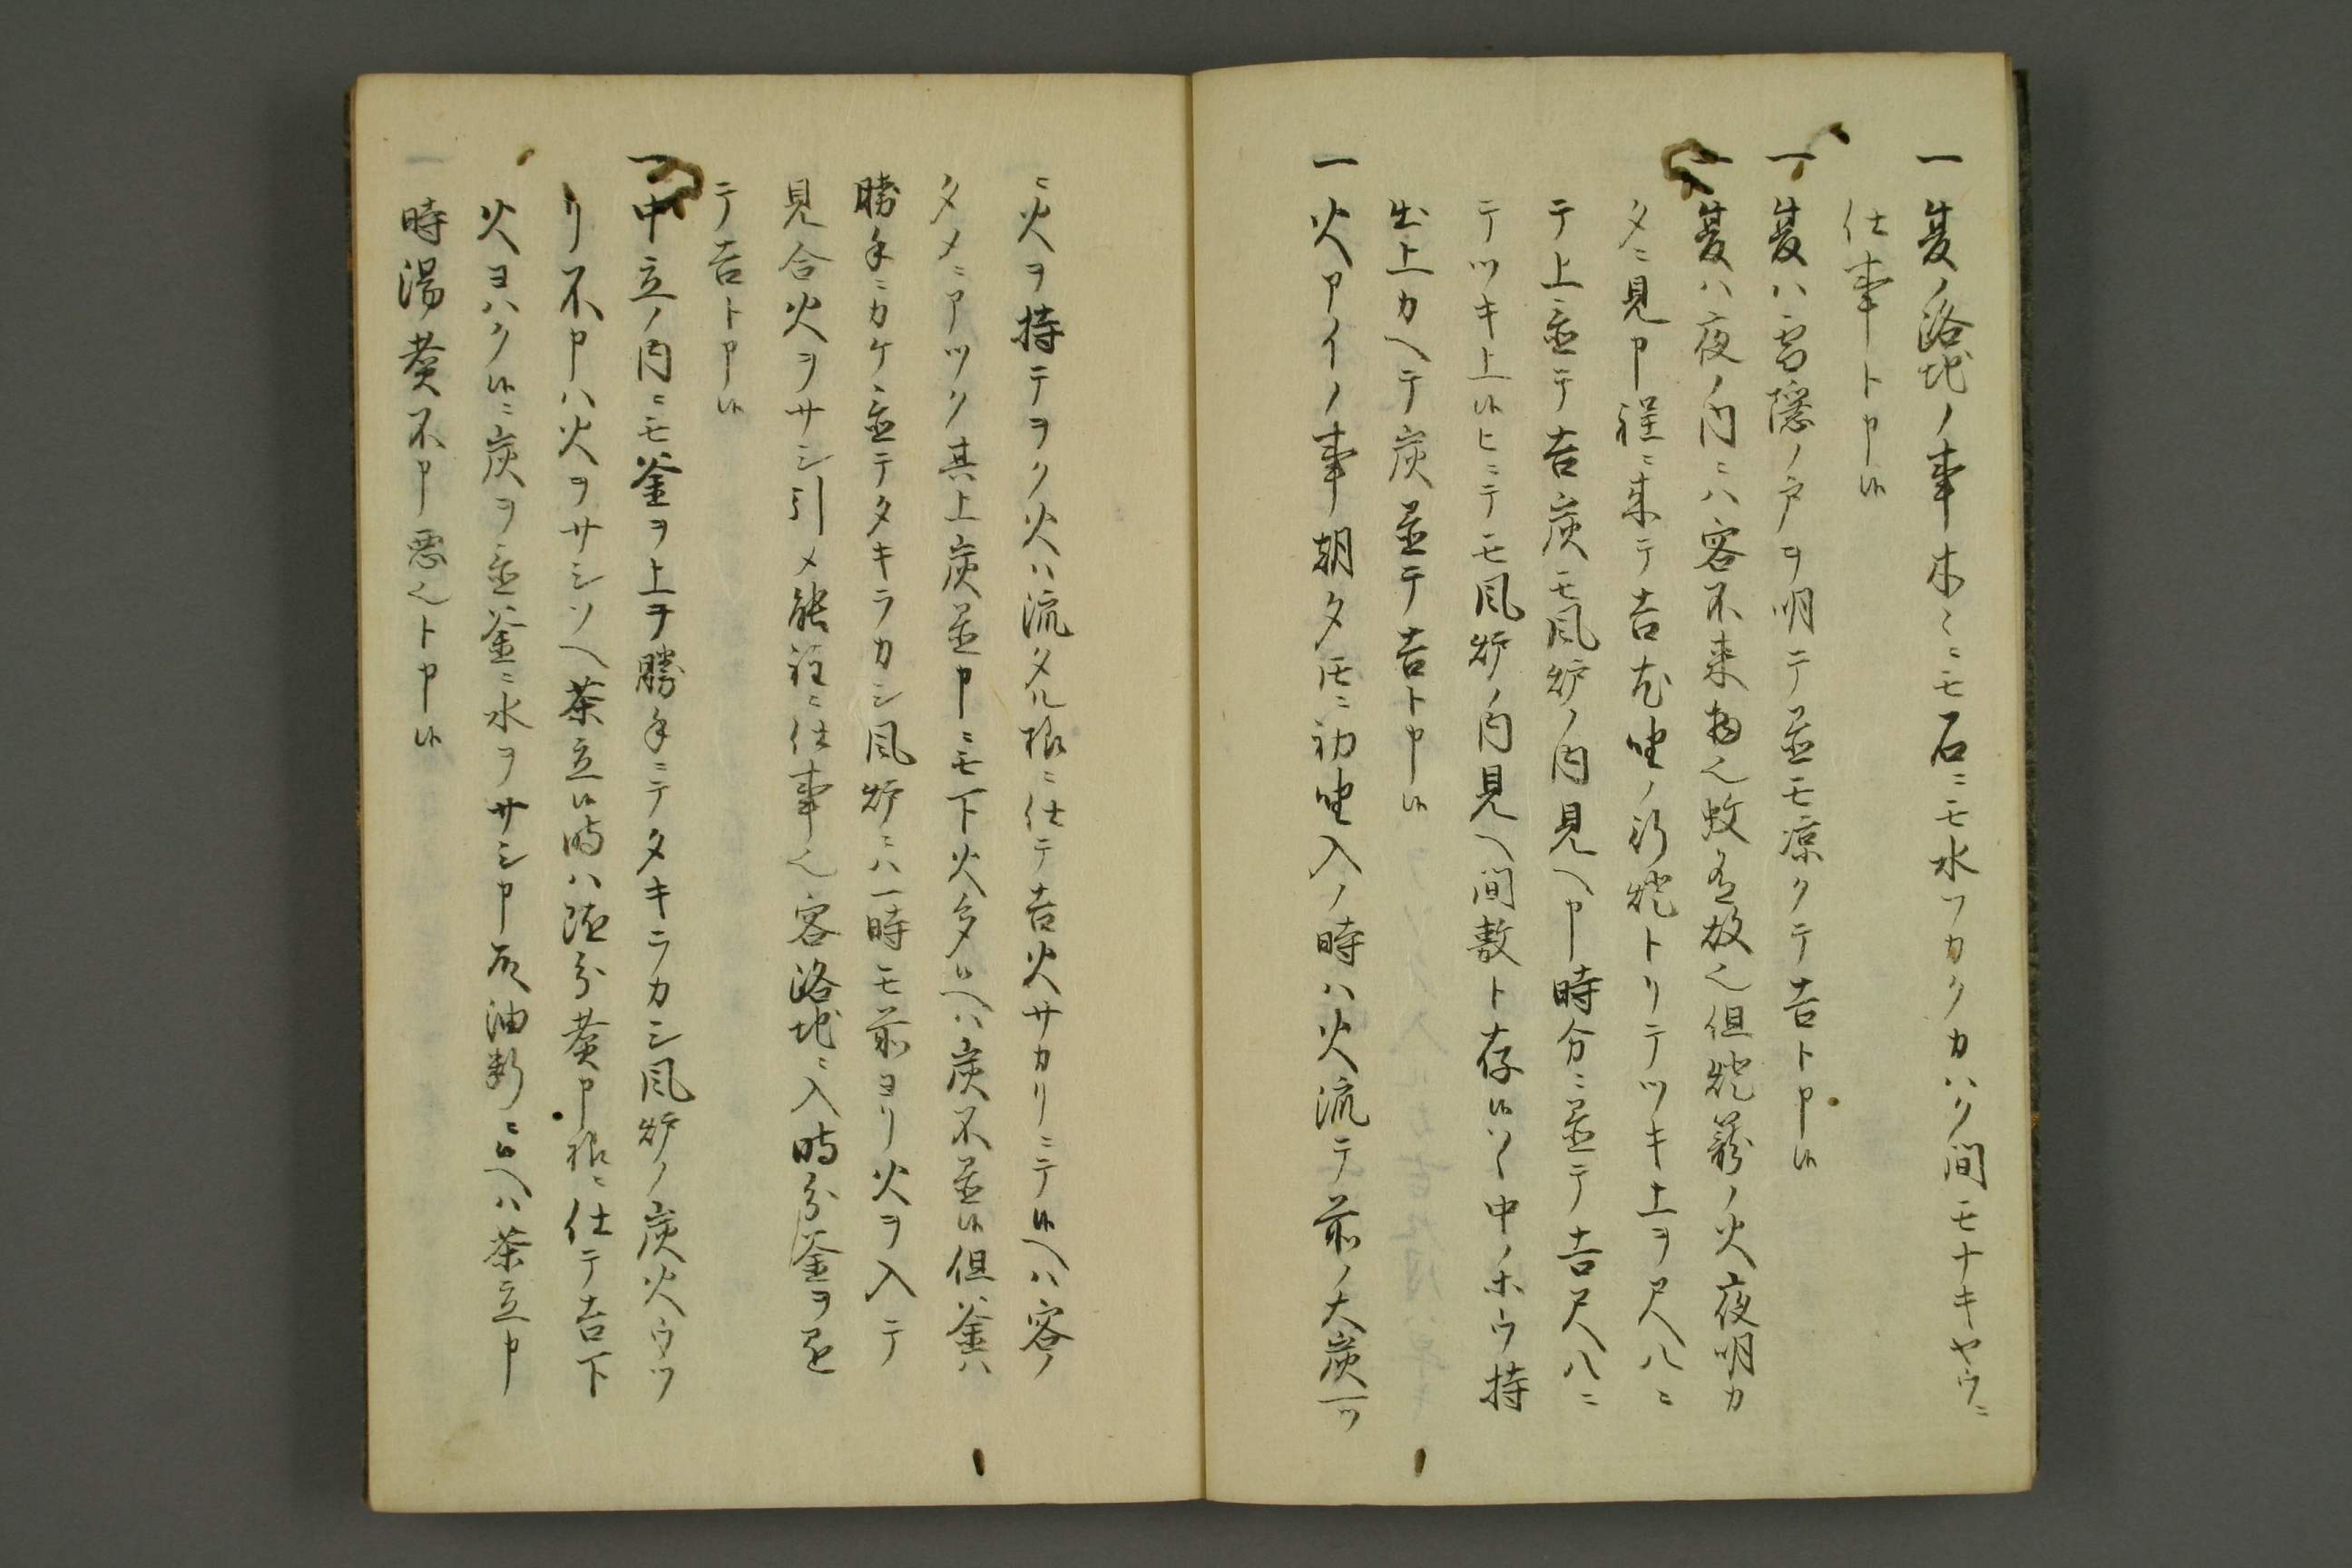 一 夏ノ路地ノ事木ミニモ石ニモ水フカクカハク間モナキヤウニ
仕事ト申候
一 夏ハ雪隠ノ戸ヲ明テ置モ凉クテ吉ト申候
一 夏ハ夜ノ内ニハ客不来物也蚊有故也但燈籠ノ火夜明カ
タニ見申程ニ来テ吉初坐ノ行燈トリテツキ上ヲ尺八ニ
テ上置テ吉炭モ風炉ノ内見ヘ申時分ニ置テ吉尺八ニ
テツキ上候ヒニテモ風炉ノ内見ヘ間敷ト存候ハヽ中ノホウ持
出上カヘテ炭置テ吉ト申候
一 火アイノ事朝夕トモニ初坐入ノ時ハ火流テ前ノ大炭一ツ
ニ火ヲ持テヲク火ハ流タル様ニ仕テ吉火サカリニテ候ヘハ客ノ
タメニアツク其上炭置申ニモ下火多候ヘハ炭不置候但釜ハ
勝手ニカケ置テタキラカシ風炉ニハ一時モ前ヨリ火ヲ入テ
見合火ヲサシ引メ能程ニ仕事也客路地ニ入時分釜ヲ置
テ吉ト申候
一 中立ノ内ニモ釜ヲ上ヲ勝手ニテタキラカシ風炉ノ炭火ウツ
リ不申ハ火ヲサシソヘ茶立候時ハ随分煮申様ニ仕テ吉下
火ヨハク候ニ炭ヲ置釜ニ水ヲサシ申反油断ニ候ヘハ茶立申
一 時湯煮不申悪也ト申候